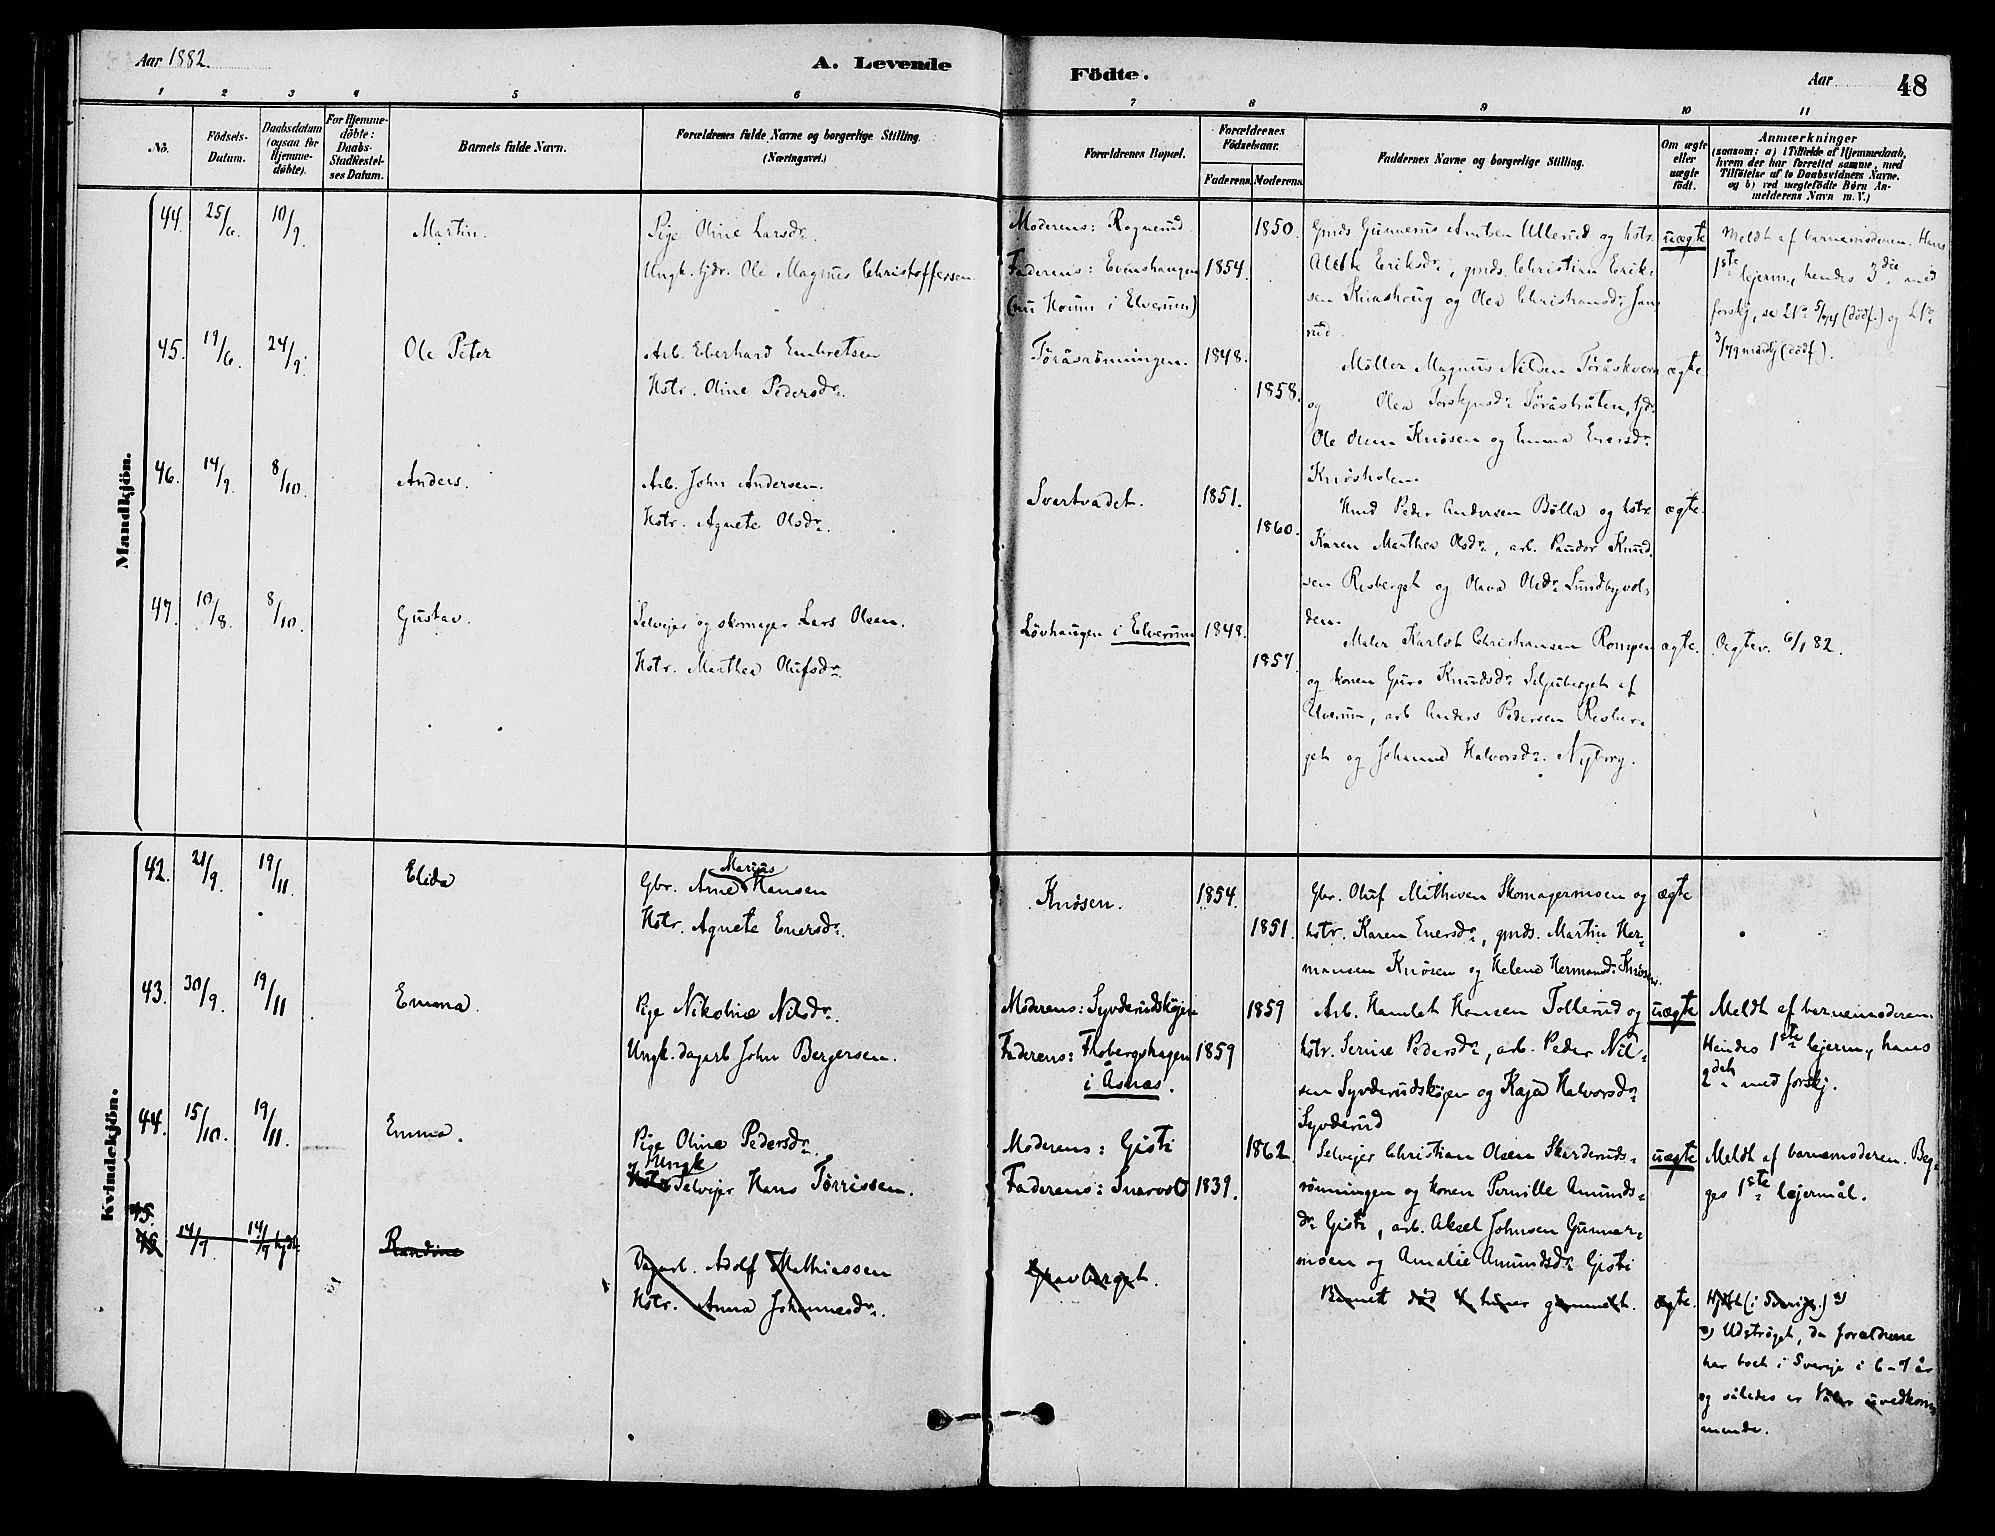 Aar 1882.
A. Levende Födte.
Aar
48
1 2 3 4 5 6 7 8 9 10 11
No.
Födsels-Datum.
Daabsdatum (ogsaa for Hjemme-döbte).
For Hjemme-döbte: Daabs-Stadfæstel-ses Datum.
Barnets fulde Navn.
Forældrenes fulde Navne og borgerlige Stilling. (Næringsvei.)
Forældrenes Bopæl.
Forældrenes Födselsaar.
Faderens. Moderens.
Faddernes Navne og borgerlige Stilling.
Om ægte eller uægte födt.
Anmærkninger
(saasom: a) i Tilfælde af Hjemmedaab,
hvem der har forrettet samme, med
Tilföielse af to Daabsvidners Navne.
og b) ved uægtefödte Börn An-
melderens Navn m. V.)
Mandkjön.
44. 25/6. 10/9. Martin.
Pige Oline Larsdr.
Ungk. tjdr. Ole Magnus Christoffersen
Moderens: Rognerud
Faderens: Evenshaugen
(nu Houm i Elverum)
1854. 1850.
Gmd. Gunnerus Amtsen Ullerud og hstr.
Alette Eriksdr., gmds. Christian Erik-
sen Knashoug og Olea Christiansdr. Jan-
rud.
uægte
Meldt af barnemoderen. Hans
1ste lejerm., hendes 3die med
forskj., se L1a 5/74 (dödf.) og L1a
3/79 mandkj (dödf.).
45. 19/6. 24/9. Ole Peter
Arb. Eberhard Embretsen
Hstr. Oline Pedersdr.
Töråsrönningen. 1848. 1858.
Möller Magnus Nilsen Töråskvern
og Olea Torskjnsdr. Töråshûten, tjdr.
Ole Olsen Knösen og Emma Enersdr.
Knösholen.
ægte
46. 14/9. 8/10. Anders.
Arb. John Andersen.
Hstr. Agnete Olsdr.
Svartvadet. 1851. 1860.
Hmd Peder Andersen Bölla og hstr.
Karen Marthea Olsdr., arb. Paudor Knud-
sen Risberget og Olava Olsdr. Sundbyvol-
den.
ægte.
47. 10/8. 8/10. Gustav.
Selvejer og skomager Lars Olsen.
Hstr. Marthea Olufsdr.
Lövhaugen i Elverum 1848. 1857.
Maler Karlot Christiansen Rompen
og konen Guro Knudsdr. Seljuberget af
Elverum, arb. Anders Pedersen Risber-
get og Johanne Halvorsdr. Nyborg.
ægte. Ægtev. 6/1 82.
Kvindekjön.
42. 21/9. 19/11. Elida
Gbr. Arne Marius Hansen
Hstr. Agnete Enersdr.
Knösen. 1854. 1851.
Gbr. Oluf Mathisen Skomagermoen og
hstr. Karen Enersdr., gmds. Martin Her-
mansen Knösen og Helene Hermansdr. Knösen.
ægte
43. 30/9. 19/11 Emma.
Pige Nikoline Nilsdr.
Ungk. dagarb. John Bergersen.
Moderens: Syverudskojen
Faderens: Flobergshagen
i Åsnes.
1859 1859
Arb. Hamlet Hansen Tollerud og
hstr. Serine Pedersdr., arb. Peder Nil-
sen Syverudskojen og Kaja Halvorsdr.
Syverud
uægte
Meldt af barnemoderen.
Hendes 1ste lejerm., hans
2det med forskj.
44. 15/10. 19/11. Emma.
Pige Oline Pedersdr.
og Ungk
Selvejer Hans Törrissen.
Moderens: Gisti
Faderens: Snarvold
1839. 1862.
Selvejer Christian Olsen Skarderuds-
rönningen og konen Pernille Amunds-
dr. Gisti, arb. Aksel Johnsen Gunnar-
moen og Amalie Amundsdr. Gisti
uægte
Meldt af barnemoderen. Beg-
ges 1ste lejermål.
45. 14/9. 14/9 hjdt. Randine
Dagarb. Adolf Mathiassen
Hstr. Anna Johannesdr.
Gravberget.
Barnet död 4 timer gammelt. ægte.
Hjdöbt (i Sverige.) a)
a) Udströget, da forældrene
har boet i Sverige i 6-7 år
og således er Våler uvedkom-
mende.